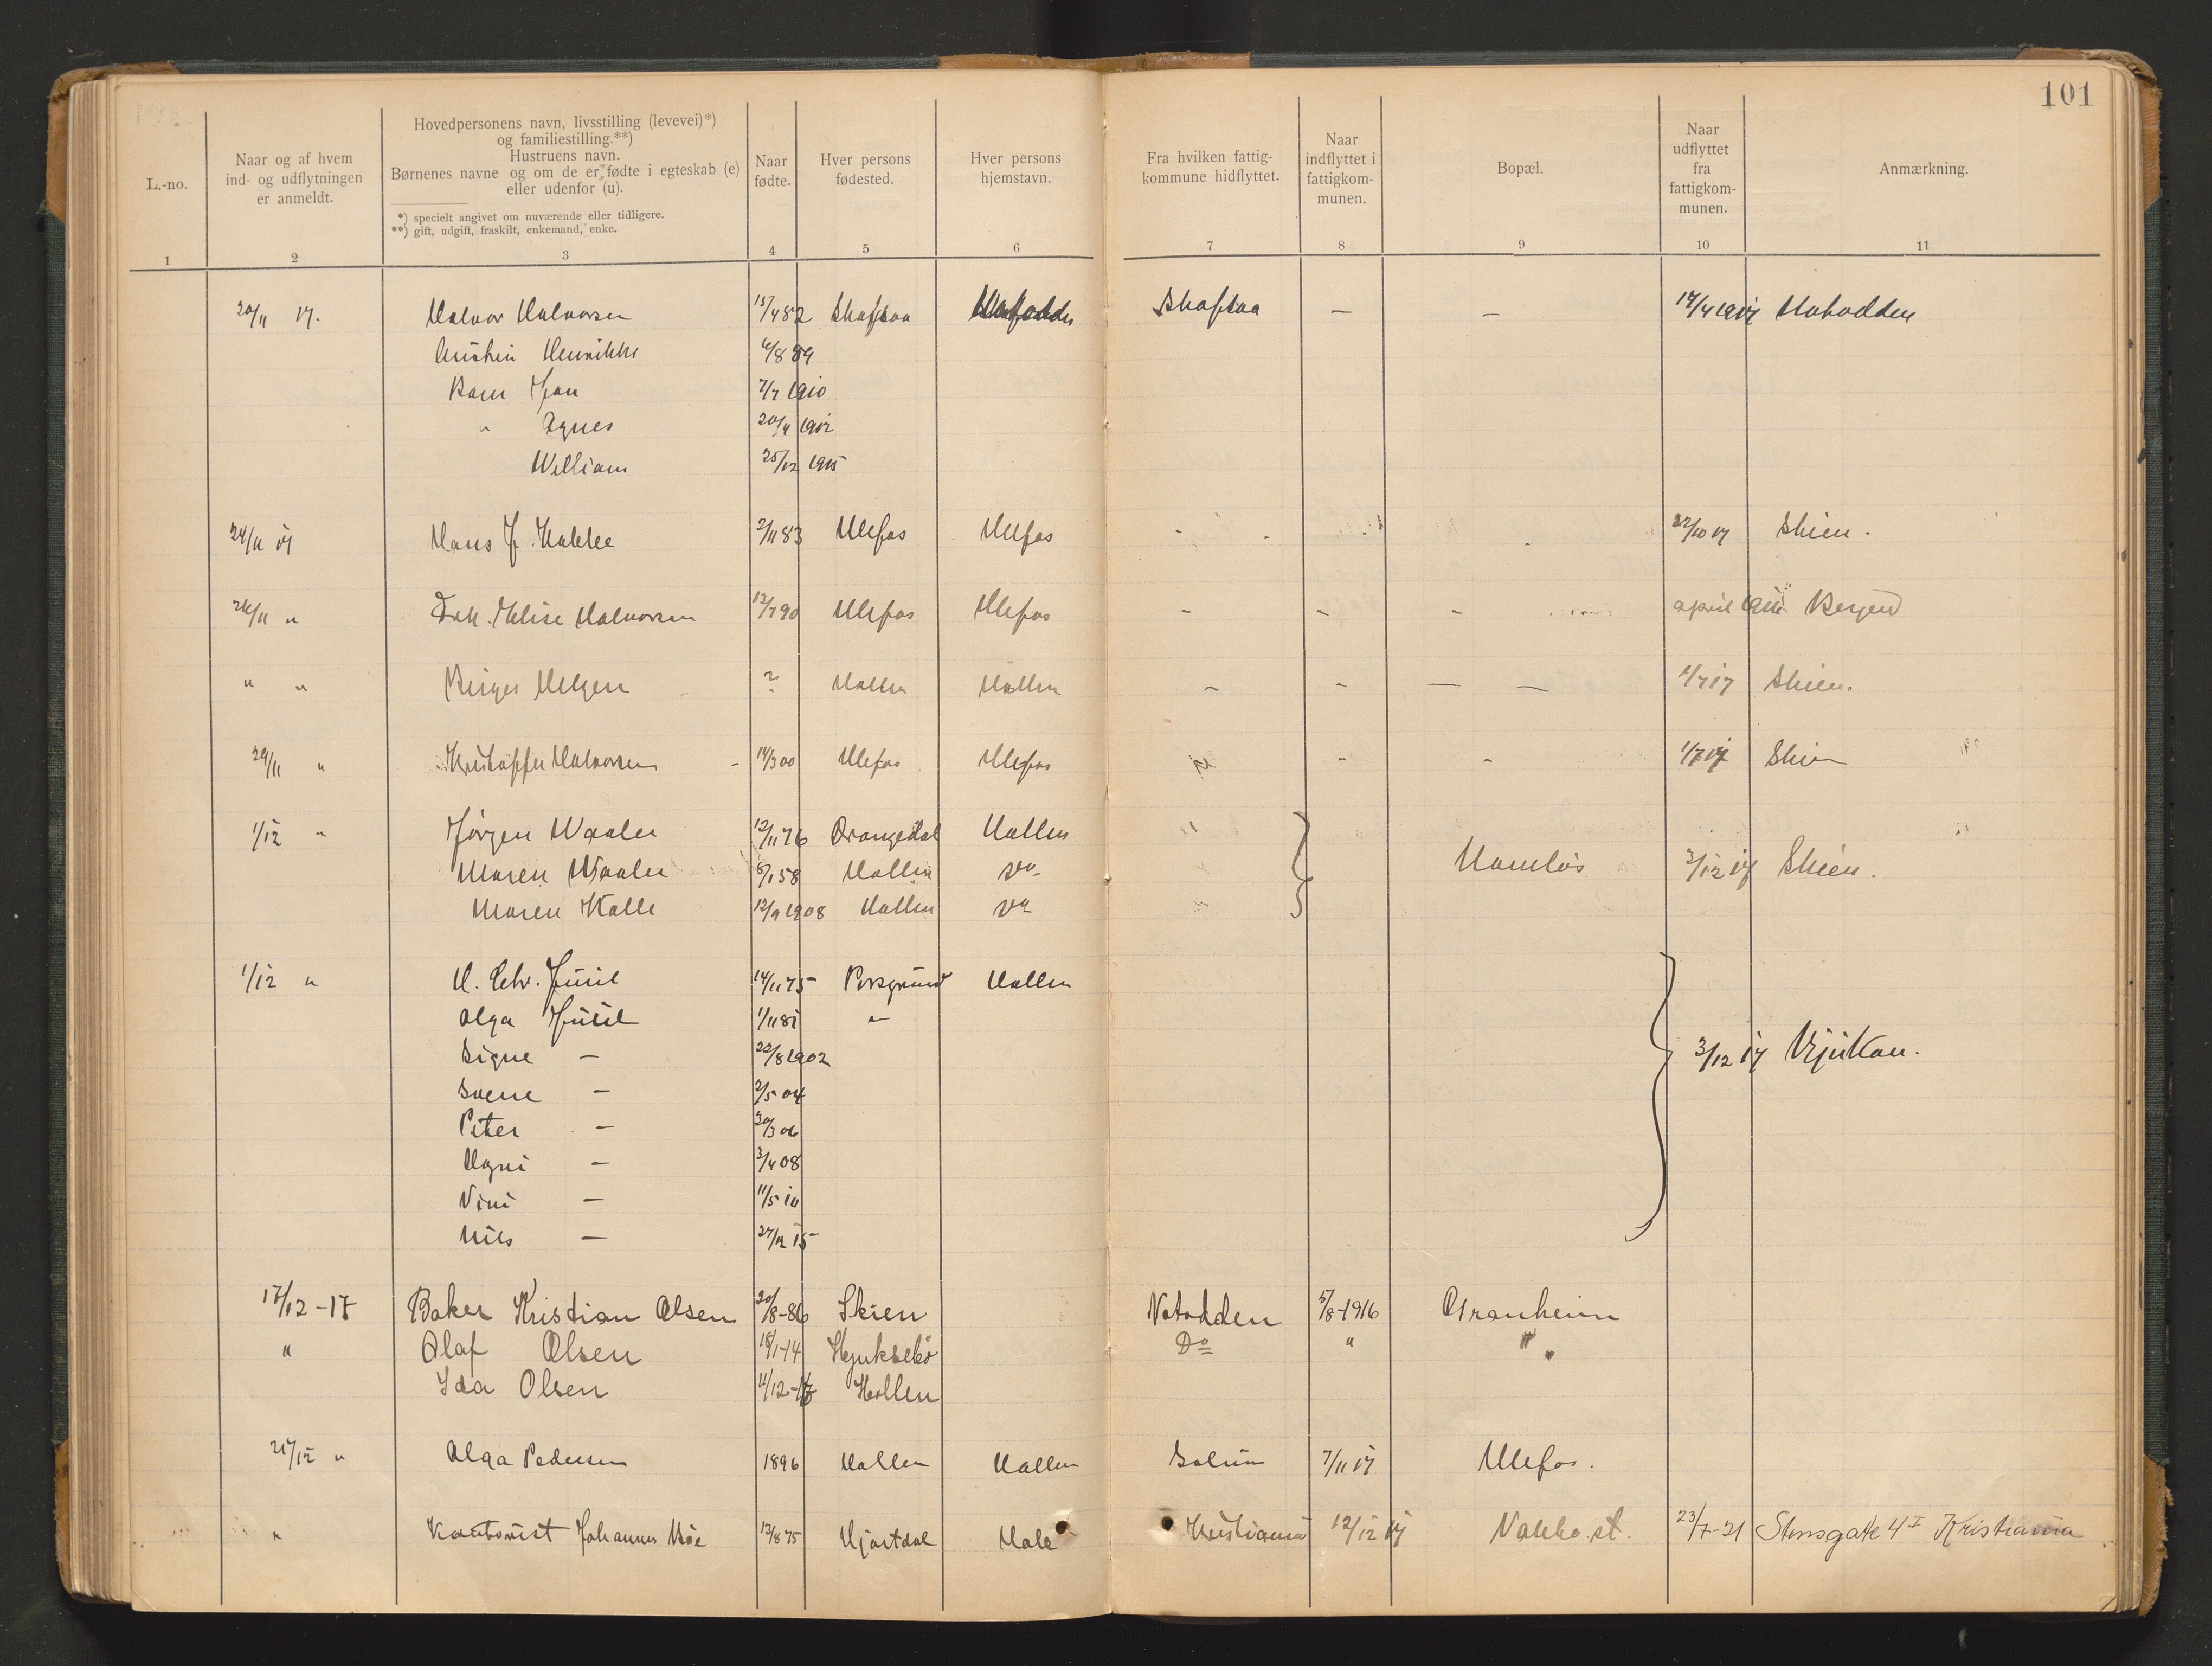 101
L.-no.
Naar og af hvem ind- og udflytningen er anmeldt.
Hovedpersonens navn, livsstilling (levevei)*) og familiestilling.**)
Hustruens navn.
Børnenes navne og om de er fødte i egteskab (e) eller udenfor (u).
*) specielt angivet om nuværende eller tidligere.
**) gift, udgift, fraskilt, enkemand, enke.
Naar fødte.
Hver persons fødested.
Hver persons hjemstavn.
Fra hvilken fattigkommune hidflyttet.
Naar indflyttet i fattigkommunen.
Bopæl.
Naar udflyttet fra fattigkommunen.
Anmærkning.
1 2 3 4 5 6 7 8 9 10 11
20/11 17. Halvor Halvorsen 15/4 82 Skafsaa Skafsaa — — 14/4 1917 Notodden
Henrikke 6/8 89
Barn Jon 7/7 1910
" Agnes 20/4 1912
William 25/12 1915
24/11 17 Hans J. Kakke 2/11 83 Ulefos Ulefos 22/10 17 Skien.
26/11 " Frk. Elise Halvorsen 12/7 90 Ulefos Ulefos - - - april Bergen
" " Birger Helgen ? Hollen Hollen - - — — 1/7 17 Skien.
29/11 " Kristoffer Halvorsen 14/3 00 Ulefos Ulefos - - 1/7 17 Skien
1/12 " Jørgen Waaler 12/11 76 Drangedal Hollen
Maren Waaler 8/1 58 Hollen Do Namløs 3/12 17 Skien.
Maren Kalle 12/9 1908 Hollen Do
1/12 " H. Chr. Juul 14/11 75 Porsgrund Hollen
Olga Juul 1/11 81 "
Signe — 22/8 1902 3/12 17 Rjukan.
Svene — 2/5 04
Peter — 30/3 06
Agni — 3/4 08
Vivi — 11/5 10
Nils — 27/12 15
17/12 -17 Baker Kristian Olsen 20/8-86 Skien Notodden 5/8-1916 Granheim
" Olaf Olsen 18/1-14 Hjuksebø Do " "
Ida Olsen 11/12-17 Hollen
21/12 " Olga Pedersen 1896 Hollen Hollen Solum 7/11 17 Ulefos.
" Kontorist Johannes Bøe 13/8 75 Hjartdal Kristiania 12/12 17 Nakko st. 23/7-21 Stensgate 4 I Kristiania